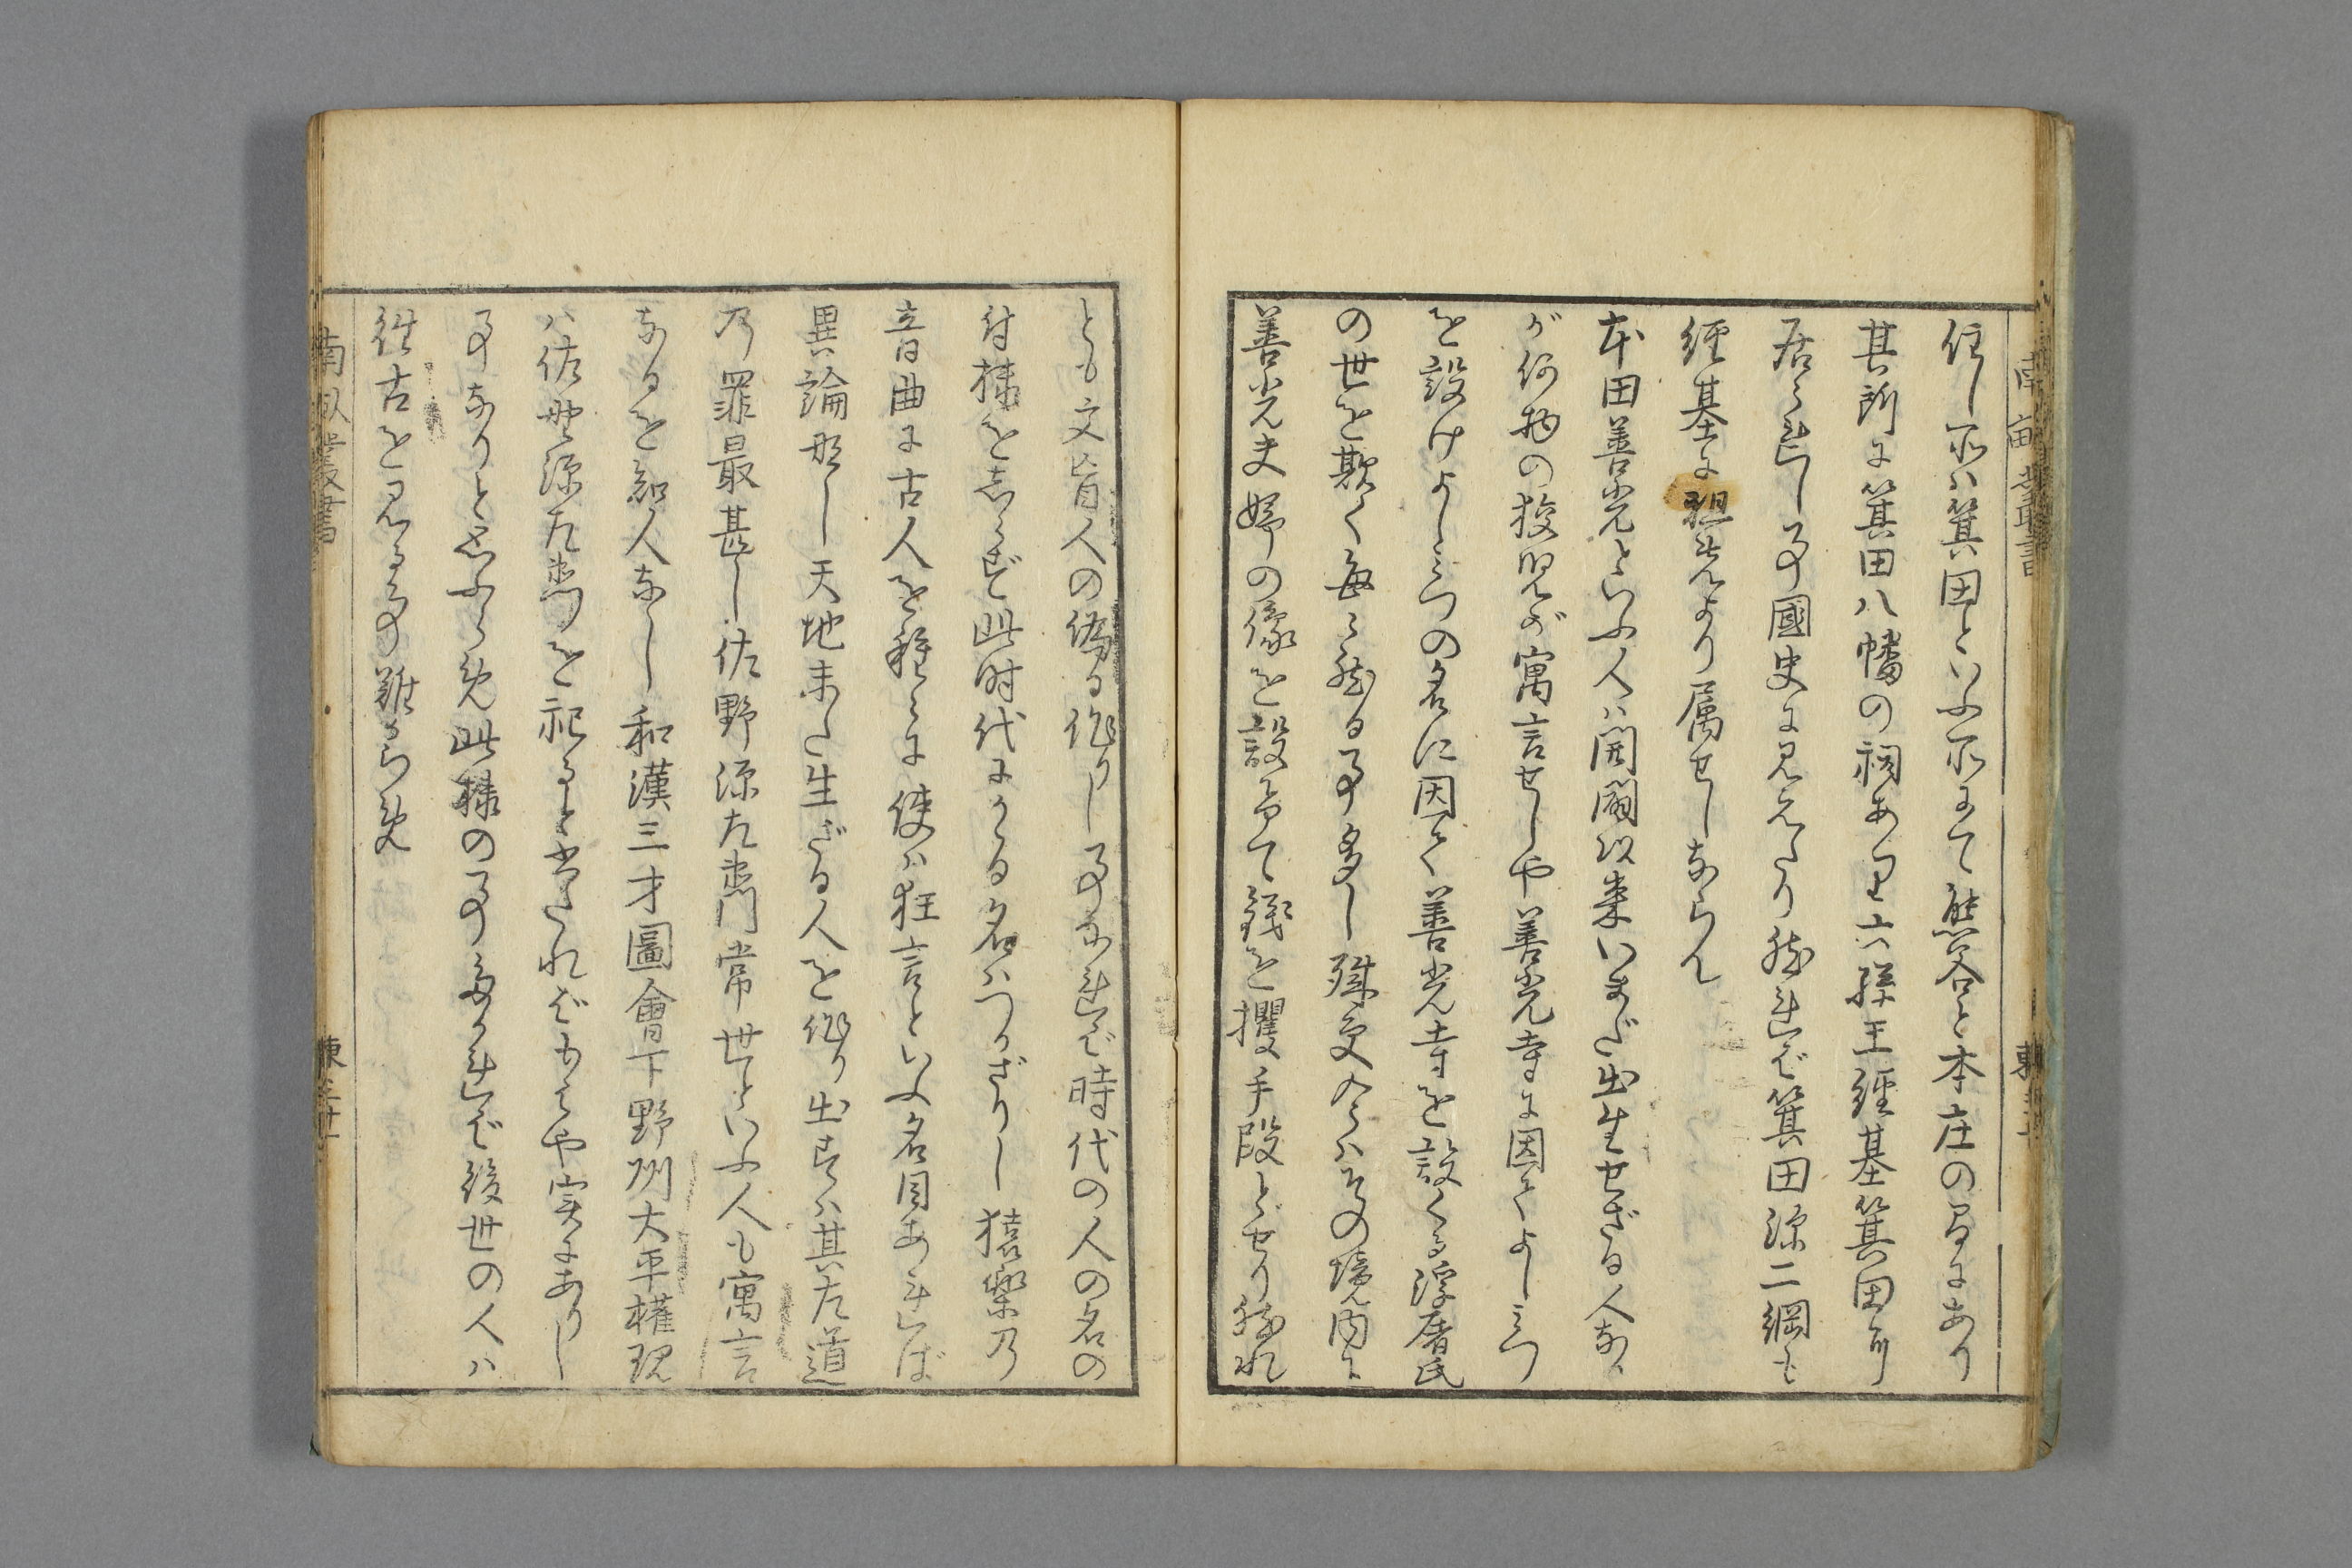 南畝叢書
住し所ハ箕田といふ所にて熊谷と本庄の間にあり
其所に箕田八幡の祠あり六孫王経基箕田に
居られし事國史に見えたり然れば箕田源二綱も
経基に祖先より属せしならん
本田善光といふ人ハ開闢以来いまだ出生せざる人なるが
何物の狡児が寓言せしや善光寺に因てよしみつ
を設けよしみつの名に因て善光寺を設くる浮屠氏
の世を欺く毎に然る事多し殊更今ハ寺の境内に
善光夫婦の像を設有て銭を攫手段とせり然れ
とも文盲人の偽る作りし事なれば時代の人の名の
付様をしらず此時代にかゝる名ハつかざりし猿樂乃
音曲に古人を種々に使ハ狂言といふ名目あれば
異論なし天地未だ生ざる人を作り出すハ其左道
乃罪最甚し佐野源左衛門常世といふ人も寓言
なるを知人なし和漢三才圖會下野州大平権現
ハ佐野源左衛門を祀ると出たればもはや実にありし
事なりと思ふらめ此様の事多ければ後世の人ハ
往古を見る事難からめ
南畝叢書